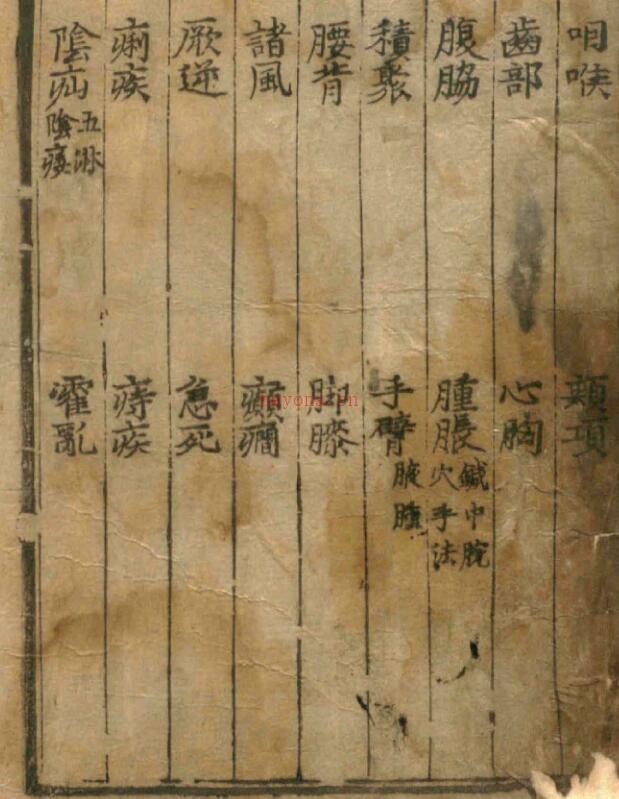 咽喉 頰項
齒部 心胸
腹脇 腫脹 鍼中脘穴手法
積聚 手臂 腋腫
腰背 脚膝
諸風 癲癎
厥逆 急死
痢疾 痔疾
陰疝 五淋陰痿 霍亂
nayona.cn